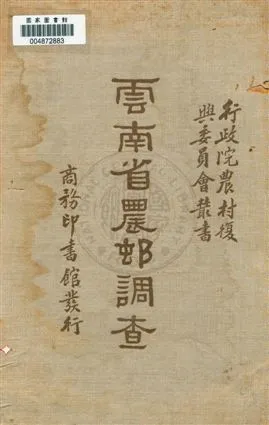 國家圖書館
004872883
行政院農村復
興委員會叢書
雲南省農邨調查
商務印書館發行